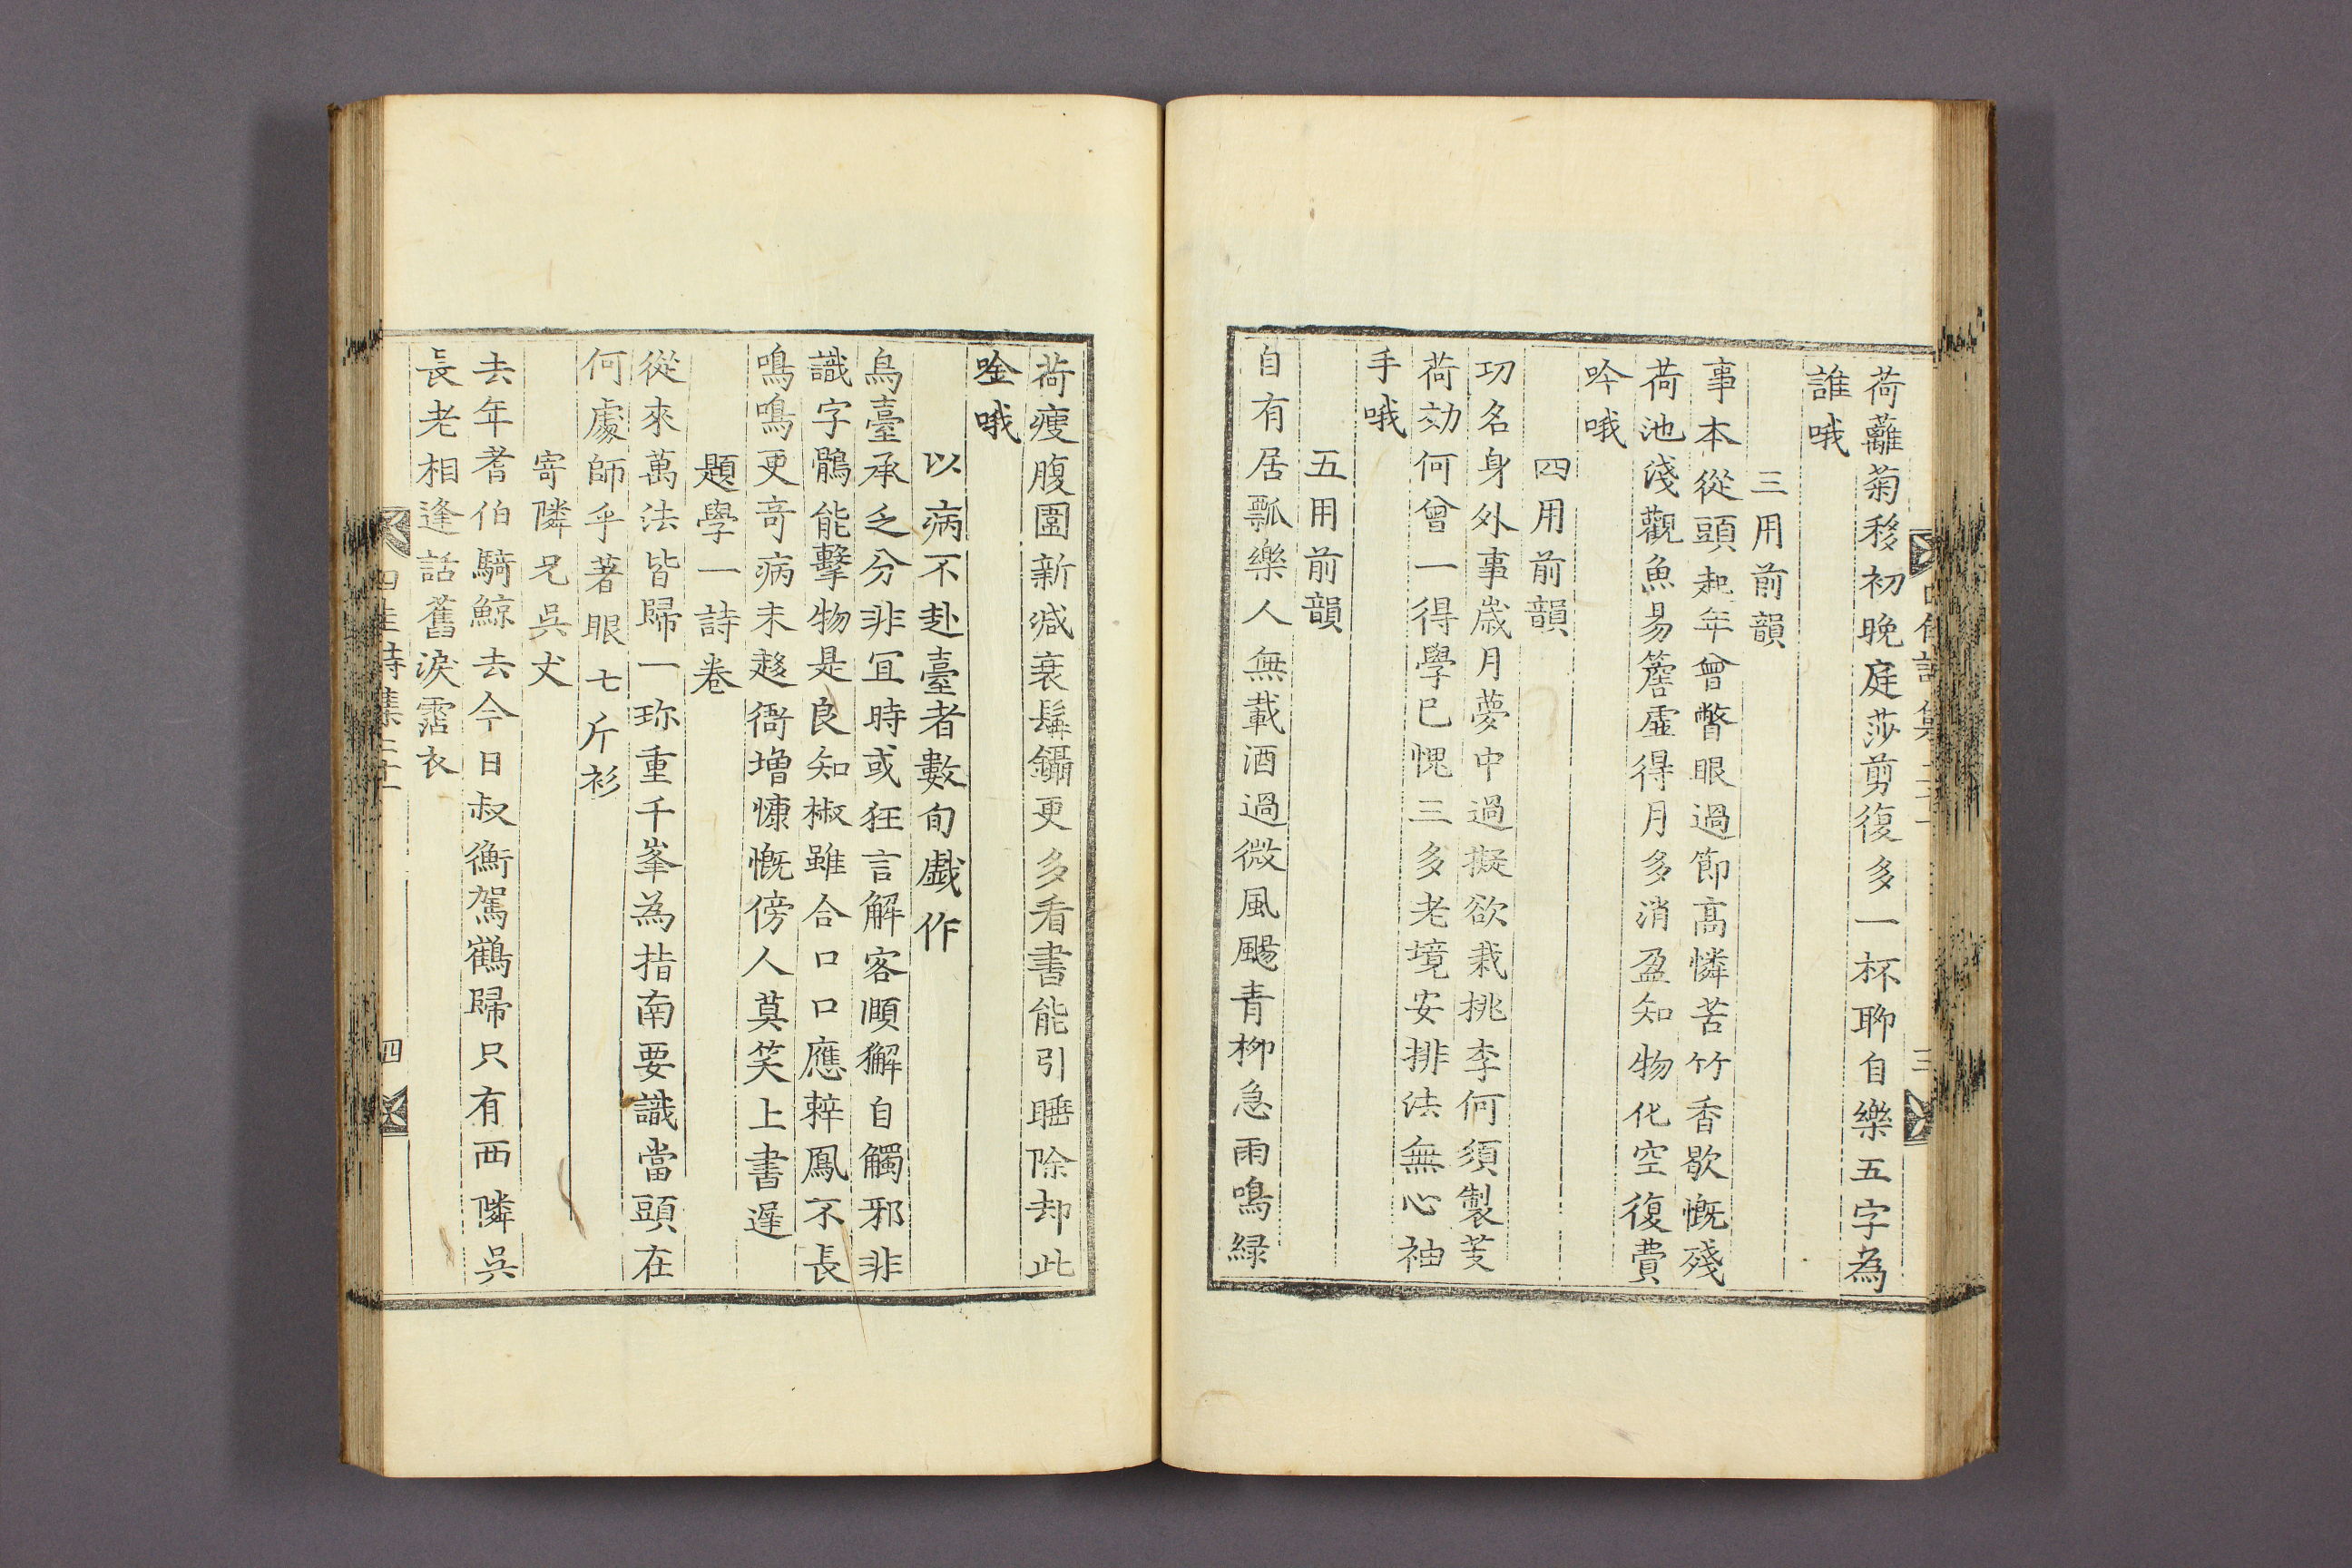 荷蘺菊移初晚庭莎剪復多一杯聊自樂五字為
誰哦
三用前韻
事本從頭起年曾瞥眼過節高憐苦竹香歇慨殘
荷池淺觀魚易簷虛得月多消盈知物化空復費
吟哦
四用前韻
功名身外事歲月夢中過擬欲栽桃李何須製芰
荷効何曾一得學已愧三多老境安排法無心袖
手哦
五用前韻
自有居瓢樂人無載酒過微風颺青柳急雨鳴緑
荷瘦腹圍新減衰鬚鑷更多看書能引睡除却此
唫哦
以病不赴臺者數旬戱作
烏臺承乏分非宜時或狂言解客頤獬自觸邪非
識字鶻能擊物是良知椒雖合口口應辣鳳不長
鳴鳴更奇病未趍衙增慷慨傍人莫笑上書遲
題學一詩卷
從來萬法皆歸一珎重千峯為指南要識當頭在
何處師乎著眼七斤衫
寄隣兄吳丈
去年耆伯騎鯨去今日叔衡駕鶴歸只有西隣吳
長老相逢話舊淚霑衣
四佳詩集 四